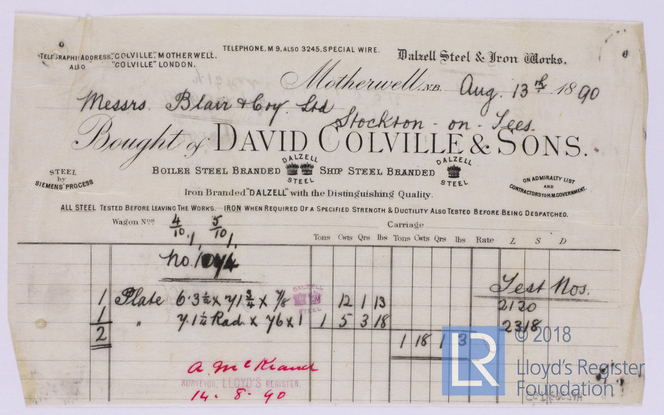 TELEPHONE, M 9, ALSO 3245, SPECIAL WIRE.
TELEGRAPHIC ADDRESS, "COLVILLE", MOTHERWELL.
ALSO "COLVILLE" LONDON.
Dalzell Steel & Iron Works.
Motherwell, N.B. Aug. 13th 1890
Messrs. Blair & Coy. Ltd
Stockton-on-Tees.
Bought of DAVID COLVILLE & SONS.
STEEL
BY
SIEMENS' PROCESS
BOILER STEEL BRANDED DALZELL STEEL SHIP STEEL BRANDED DALZELL STEEL
ON ADMIRALTY LIST
AND
CONTRACTORS TO H.M. GOVERNMENT.
Iron Branded "DALZELL" with the Distinguishing Quality.
ALL STEEL TESTED BEFORE LEAVING THE WORKS. IRON WHEN REQUIRED OF A SPECIFIED STRENGTH & DUCTILITY ALSO TESTED BEFORE BEING DESPATCHED.
Wagon Nos 4/10 5/10 Carriage
Tons Cwts Qrs lbs Tons Cwts Qrs lbs Rate L S D
No.
Test Nos.
1 Plate 12 1 13 2120
DALZELL
STEEL
1 " Rad. x 76 x 1 1 5 3 18 2318
2 1 18 1 3
SURVEYOR, LLOYD'S REGISTER.
14. 8. 90
LR
© 2018
Lloyd's Register
Foundation